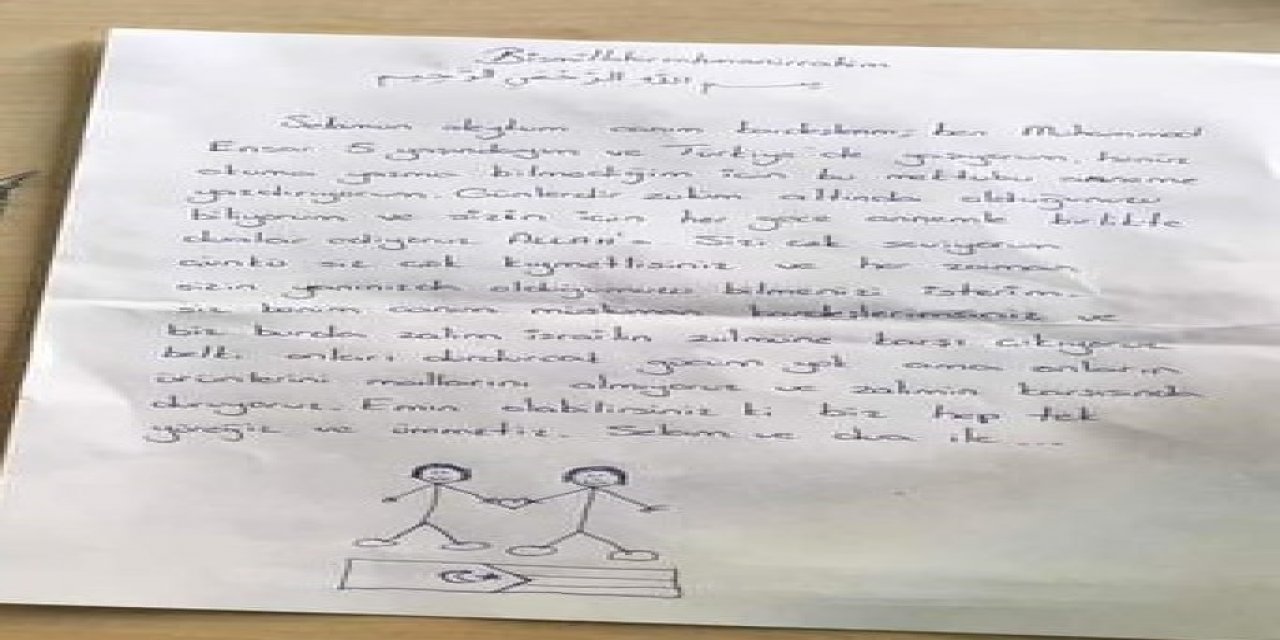 Bismillahirrahmanirrahim
بسم الله الرحمن الرحيم
Selamun aleyküm canım kardeşlerim, ben Muhammed
Ensar 5 yaşındayım ve Türkiye de yaşıyorum, henüz
okuma yazma bilmediğim için bu mektubu anneme
yazdırıyorum. Günlerdir zulüm altında olduğunuzu
biliyorum ve sizin için her gece annemle birlikte
dualar ediyoruz ALLAH'a. Sizi çok seviyorum
çünkü siz çok kıymetlisiniz ve her zaman
sizin yanınızda olduğumuzu bilmenizi isterim.
siz benim canım müslüman kardeşlerimsiniz ve
biz burda zalim israilin zulmüne karşı çıkıyoruz
belki onları durduracak gücüm yok ama onların
ürünlerini mallarını almıyoruz ve zalimin karşısında
duruyoruz. Emin olabilirsiniz ki biz hep tek
yüreğiz ve ümmetiz. Selam ve dua ile ....